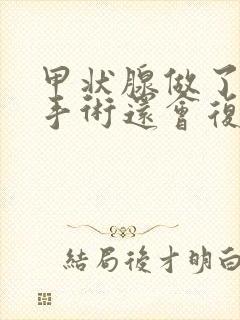 甲狀腺做了
手術還會復
結局後才明白